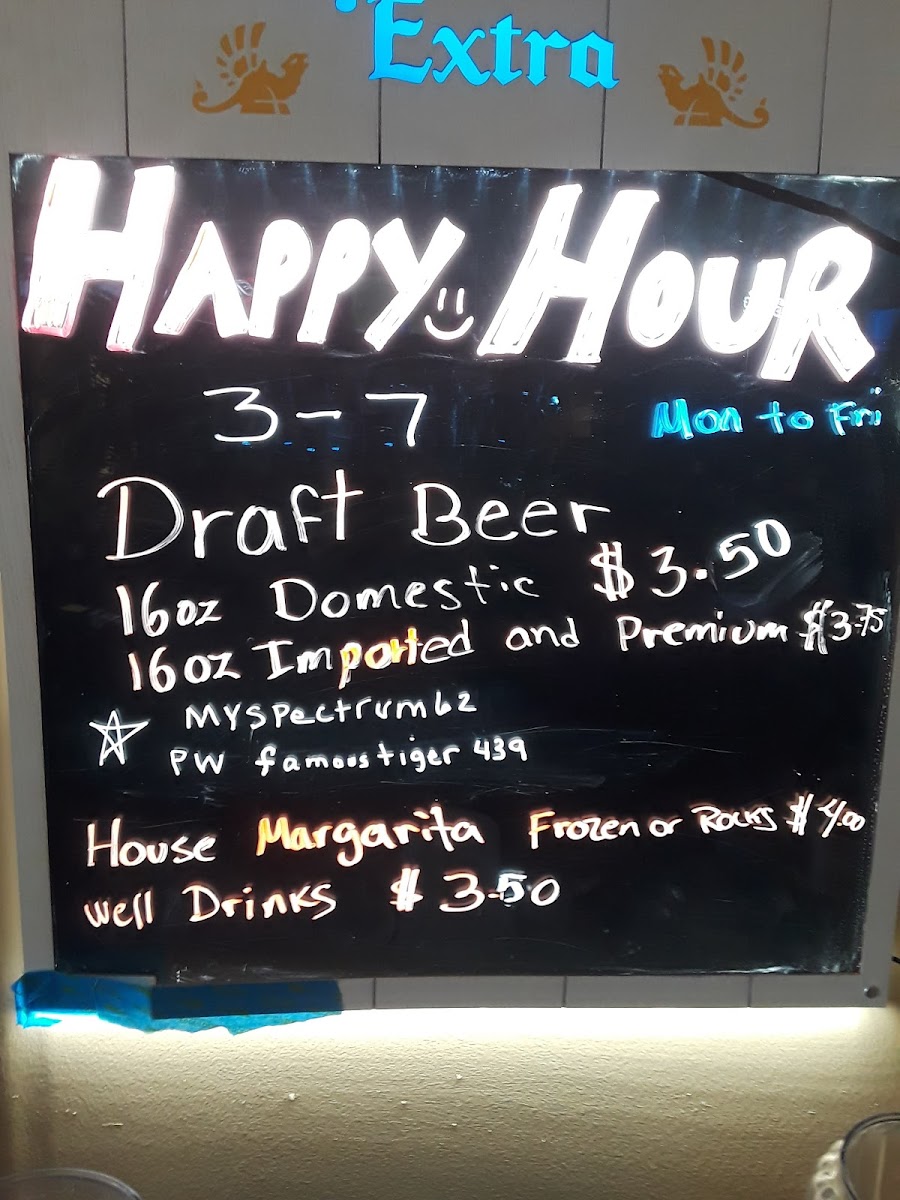 Extra
HAPPY HOUR
3-7
Mon to Fri
Draft Beer
16oz Domestic $3.50
16oz Imported and Premium $3.75
MYSpectrum62
PW famoustiger439
House Margarita Frozen or Rocks $4.00
Well Drinks $3.50